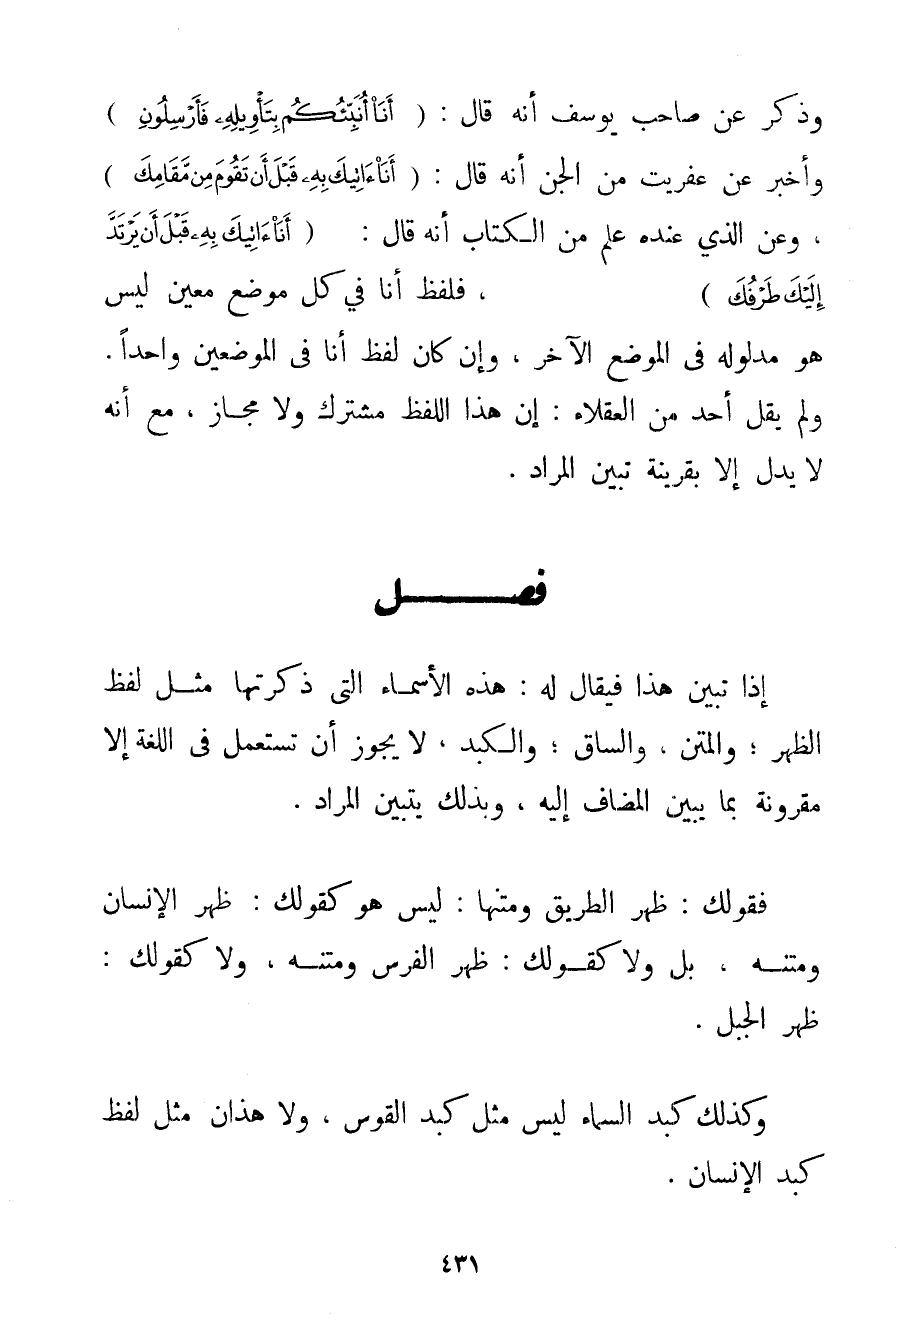 وذكر عن صاحب يوسف أنه قال : ( أَنَا۠ أُنَبِّئُكُم بِتَأْوِيلِهِۦ فَأَرْسِلُونِ )
وأخبر عن عفريت من الجن أنه قال : ( أَنَا۠ ءَاتِيكَ بِهِۦ قَبْلَ أَن تَقُومَ مِن مَّقَامِكَ )
، وعن الذي عنده علم من الـكتاب أنه قال : ( أَنَا۠ ءَاتِيكَ بِهِۦ قَبْلَ أَن يَرْتَدَّ
إِلَيْكَ طَرْفُكَ ) ، فلفظ أنا في كل موضع معين ليس
هو مدلوله فى الموضع الآخر ، وإن كان لفظ أنا فى الموضعين واحداً .
ولم يقل أحد من العقلاء : إن هذا اللفظ مشترك ولا مجـاز ، مع أنه
لا يدل إلا بقرينة تبين المراد .
فصـــــل
إذا تبين هذا فيقال له : هذه الأسمـاء التى ذكرتها مثـل لفظ
الظهر ؛ والمتن ، والساق ؛ والـكبد ، لا يجوز أن تستعمل فى اللغة إلا
مقرونة بما يبين المضاف إليه ، وبذلك يتبين المراد .
فقولك : ظهر الطريق ومتنها : ليس هو كقولك : ظهر الإنسان
ومتنـه ، بل ولا كقـولك : ظهر الفرس ومتنـه ، ولا كقولك :
ظهر الجبل .
وكذلك كبد السماء ليس مثل كبد القوس ، ولا هذان مثل لفظ
كبد الإنسان .
٤٣١